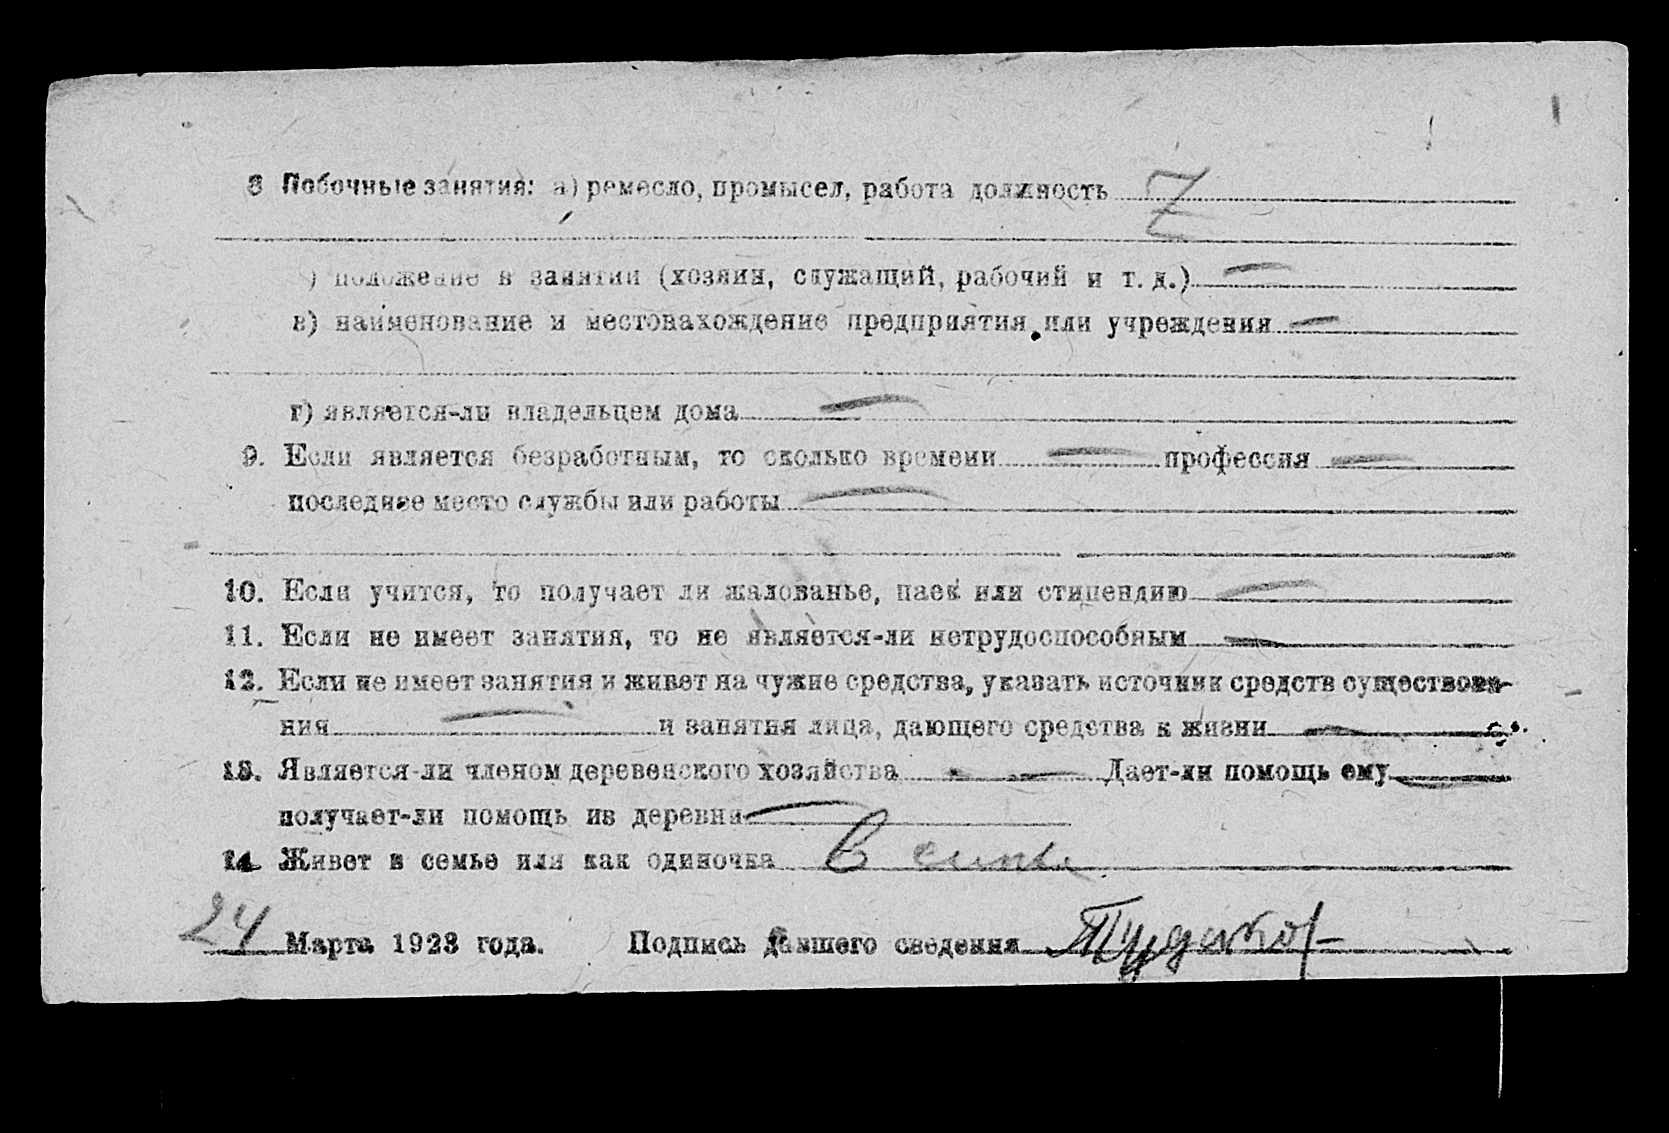 8 Побочные занятия: а) ремесло, промысел, работа должность Z
) положение в занятии (хозяин, служащий, рабочий и т. д.) —
в) наименование и местонахождение предприятия или учреждения —
г) является-ли владельцем дома —
9. Если является безработным, то сколько времени — профессия —
последнее место службы или работы —
10. Если учится, то получает ли жалованье, паек или стипендию —
11. Если не имеет занятия, то не является-ли нетрудоспособным —
12. Если не имеет занятия и живет на чужие средства, указать источники средств существова-
ния — и занятия лица, дающего средства к жизни —
13. Является-ли членом деревенского хозяйства — Дает-ли помощь ему —
получает-ли помощь из деревни —
14. Живет в семье или как одиночка В семье
24 Марта 1923 года. Подпись давшего сведения